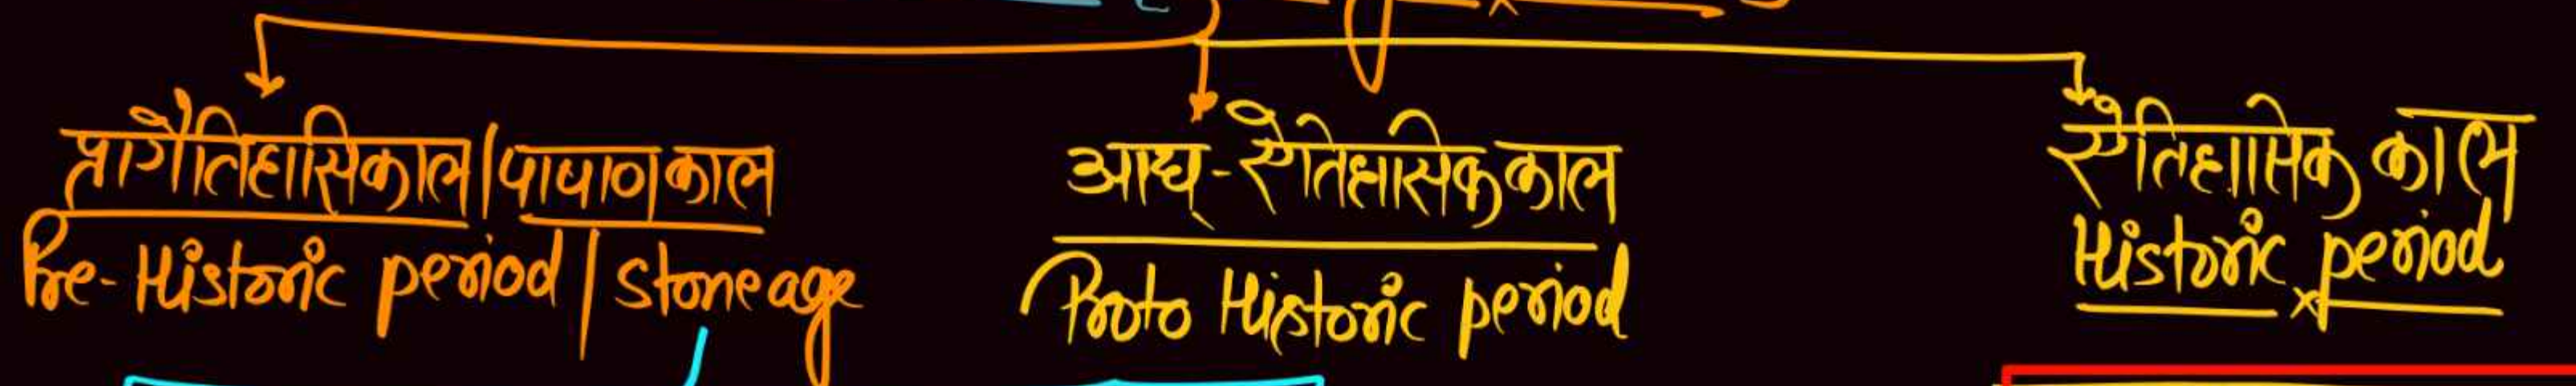 प्रागैतिहासिककाल|पाषाण काल
Pre-Historic period | stone age
आद्य-ऐतिहासिक काल
Proto Historic period
ऐतिहासिक काल
Historic period